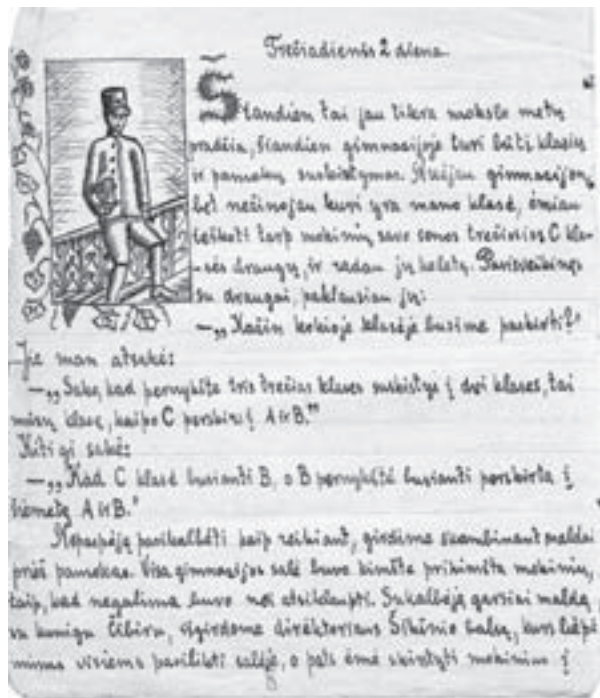 Trečiadienis 2 diena.
Šiandien tai jau tikra mokslo metų
pradžia, šiandien gimnazijoje turi būti klasių
ir pamokų suskirstymas. Nuėjau gimnazijon,
bet nežinojau kuri yra mano klasė, ėmiau
ieškoti tarp mokinių savo senos trečiosios C kla-
-sės draugų, ir radau jų keletą. Pasisveikinęs
su draugais, paklausiau jų:
–„Kažin kokioje klasėje busime paskirti?"
Jie man atsakė:
–„Sako, kad pernykšte tris trečias klases suskirstys į dvi klases, tai
mūsų klasę, kaipo C perskirs į A ir B."
Kiti gi sakė:
–„Kad C klasė busianti B, o B pernykštė busianti perskirta į
šiemetę A ir B."
Nespėję pasikalbėti kaip reikiant, girdime skambinant maldai
prieš pamokas. Visa gimnazijos salė buvo kimšte prikimšta mokinių,
taip, kad negalima buvo nei atsiklaupti. Sukalbėję garsiai maldą
su kunigu Čibiru, išgirdome direktoriaus Šikšnio balsą, kurs liepė
mums visiems pasilikti salėje, o pats ėmė skirstyti mokinius į